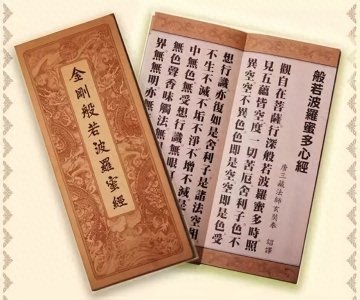 金剛般若波羅蜜經
般若波羅蜜多心經
唐三藏法師玄奘奉 詔譯
觀自在菩薩行深般若波羅蜜多時照
見五蘊皆空度一切苦厄舍利子色不
異空空不異色色即是空空即是色受
想行識亦復如是舍利子是諸法空相
不生不滅不垢不淨不增不減是
中無色無受想行識無眼
無色聲香味觸法無
界無無明亦無